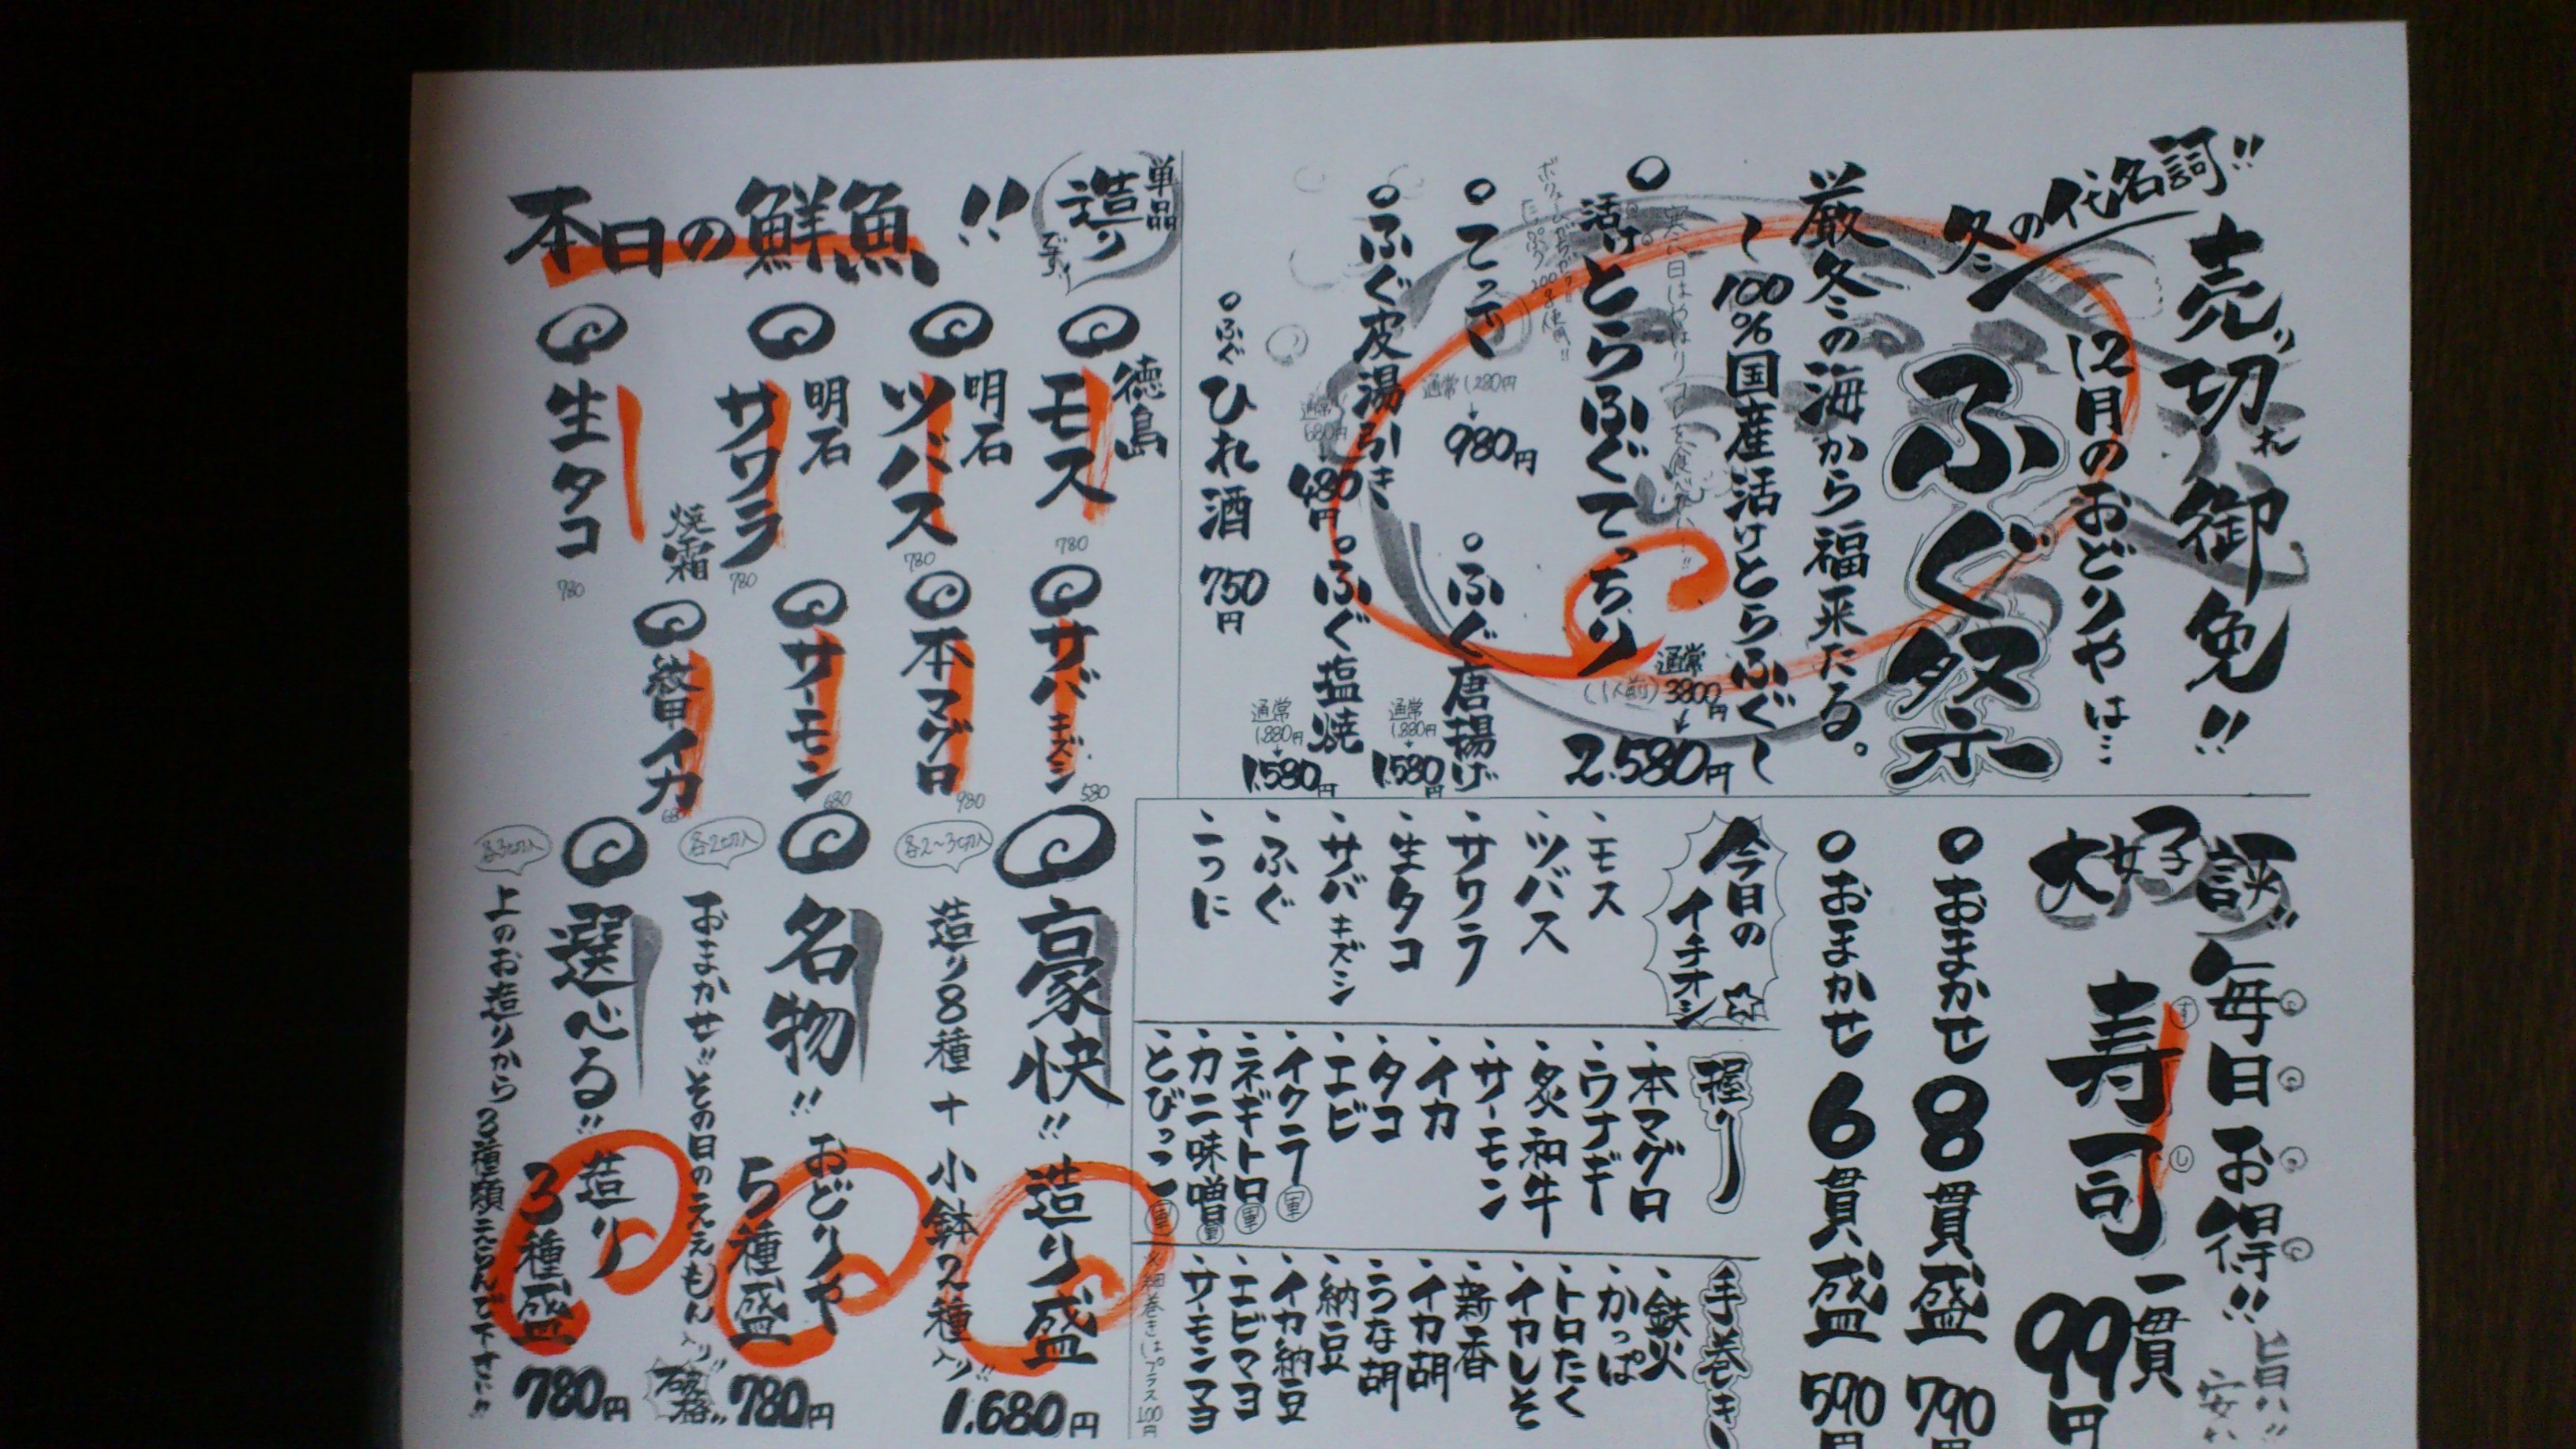 売り切れ御免!!
冬の代名詞!!
12月のおどりやは…
ふぐ祭
厳冬の海から福来たる。
〜100%国産活けとらふぐ〜
活けとらふぐてっちり
通常3800円
(1人前)
2.580円
てっさ
通常1.280円
980円
ふぐ唐揚げ
通常1.880円
1.580円
ふぐ皮湯引き
通常680円
480円
ふぐ塩焼
通常1.880円
1.580円
ふぐひれ酒 750円
単品
造り
です!
本日の鮮魚!!
徳島
モス
780
明石
ツバス
780
明石
サワラ
焼霜
780
生タコ
780
サバキズシ
580
本マグロ
980
サーモン
680
紋甲イカ
680
豪快!!造り盛
各2〜3切入
造り8種+小鉢2種入り!!
1.680円
名物!!おどりや
5種盛
各2切入
おまかせ!!その日のええもん入り!!
破格!!
780円
選べる!!造り
3種盛
各3切入
上のお造りから3種類えらんで下さい!!
780円
大好評!!毎日お得!!
寿司
すし
一貫
99円
旨い!!
安い!!
おまかせ8貫盛 790円
おまかせ6貫盛 590円
今日のイチオシ☆
・モス
・ツバス
・サワラ
・生タコ
・サバキズシ
・ふぐ
・こっに
握り
・本マグロ
・ウナギ
・炙和牛
・サーモン
・イカ
・タコ
・エビ
・イクラ軍
・ネギトロ軍
・カニ味噌軍
・とびっこ軍
手巻き
・鉄火
・かっぱ
・トロたく
・イカしそ
・新香
・イカ胡
・うな胡
・納豆
・イカ納豆
・エビマヨ
・サーモンマヨ
※細巻きはプラス100円